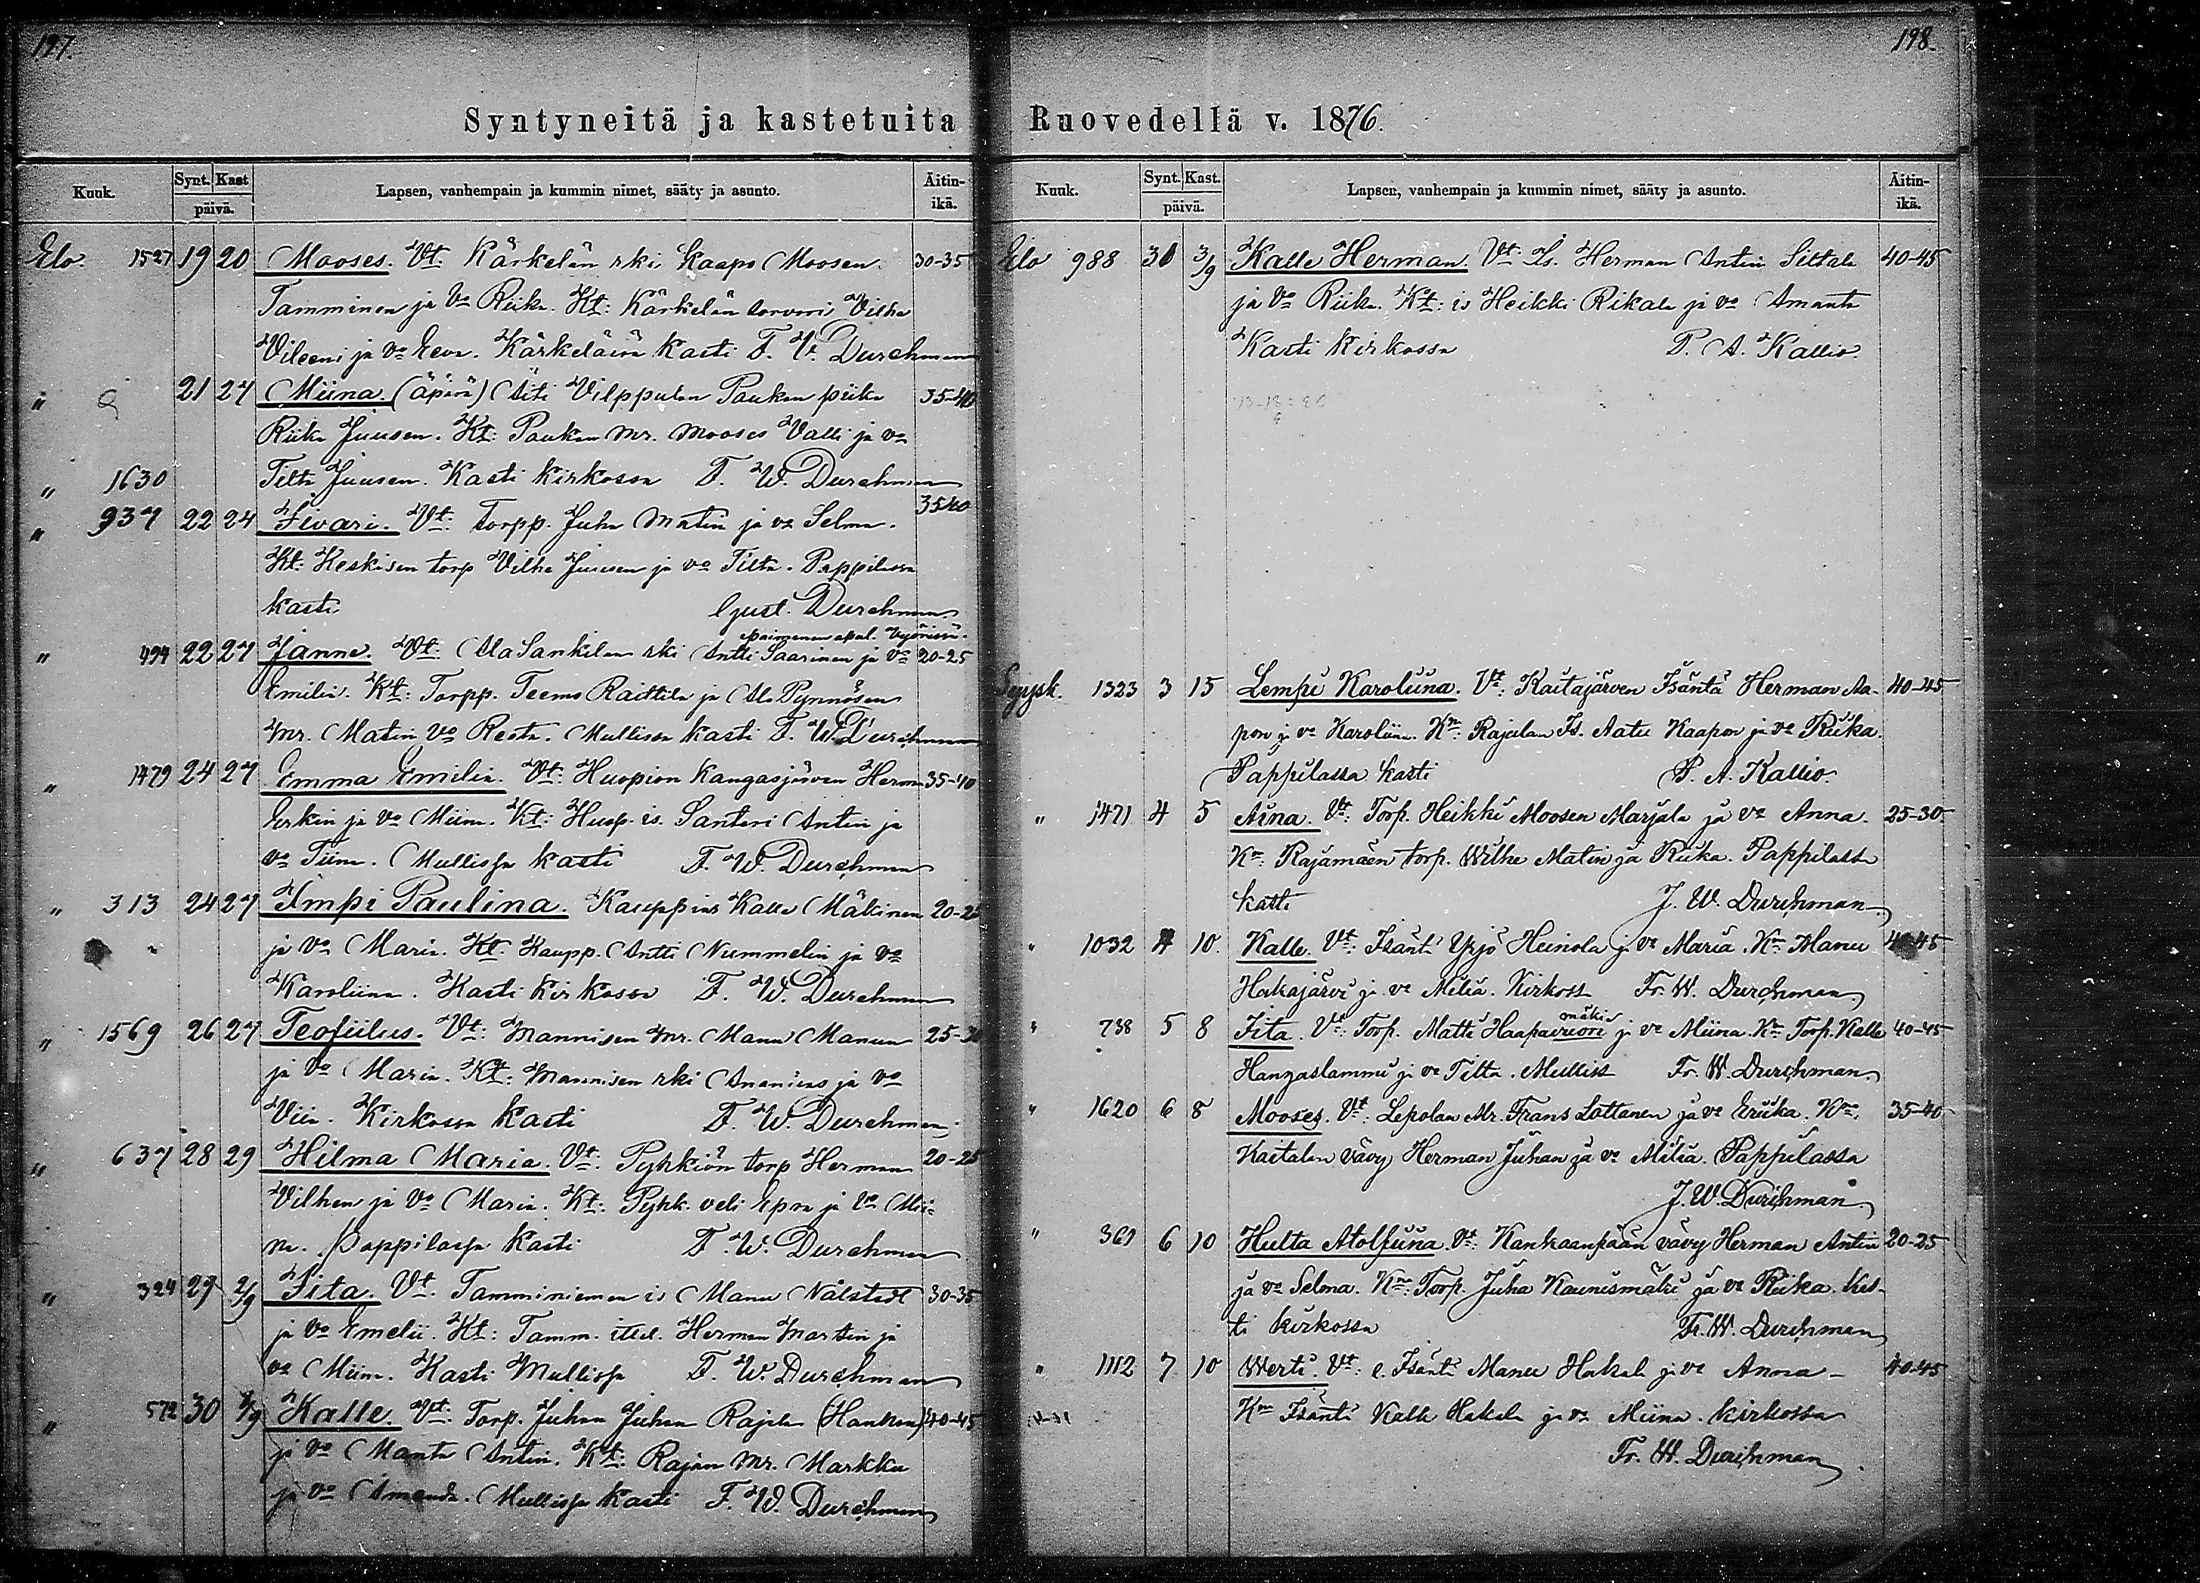 197.
Syntyneitä ja kastetuita
Kuuk. Synt. Kast päivä. Lapsen, vanhempain ja kummin nimet, sääty ja asunto. Äitin-ikä.
Elo. 1527 19 20 Mooses. Vt. Kärkelän rki Kaapo Moosen 30-35
Tamminen ja vo Riika. Kt: Kärkelän torvari Vilhe
Vileeni ja vo Eeva. Kärkeläinä kasti F. W. Durchman
" 21 27 Miina. (äpärä) Äiti Vilppulan Paukan piika 35-40
Riika Juusen. Kt: Paukan Mr. Mooses Valli ja vo
" 1630 Tilta Juusen. Kasti kirkossa F. W. Durchman
" 937 22 24 Iivari. Vt: Torpp. Juha Matin ja vo Selma. 35-40
Kt: Keskisen torp Vilhe Juusen ja vo Tilta. Pappilassa
kasti Gust. Durchman
" 494 22 27 Janne. Vt: Ala Sankilan rki Antti Saarinen ja vo 20-25
Emilia. Kt: Torpp. Teemo Raittila ja Ala Pynnösen
mr. Matin vo Reeta. Mullissa kasti F. W. Durchman
" 1479 24 27 Emma Emilia. Vt: Huopion Kangasjärven Herman 35-40
Erkin ja vo Miina. Kt: Huop. is. Santeri Antin ja
vo Tiina. Mullissa kasti F. W. Durchman
" 313 24 27 Impi Paulina. Kauppias Kalle Mäkinen 20-25
ja vo Maria. Kt: Kaupp. Antti Nummelin ja vo
Karoliina. Kasti kirkossa F. W. Durchman
" 1569 26 27 Teofiilus. Vt: Mannisen mr. Manu Manun 25-30
ja vo Maria. Kt: Mannisen rki Ananias ja vo
Viia. Kirkossa kasti F. W. Durchman
" 637 28 29 Hilma Maria. Vt: Pyhkiön torp Herman 20-25
Vilhen ja vo Maria. Kt: Pyhk. veli Epra ja vo Mii-
na. Pappilassa kasti F. W. Durchman
" 324 29 2/9 Iita. Vt. Tamminiemen is Manu Nälstedt 30-35
ja vo Emelii. Kt: Tamm. itsel. Herman Martin ja
vo Miina. Kasti Mullissa F. W. Durchman
" 572 30 /9 Kalle. Vt: Torp. Juhan Juhan Rajala 40-45
ja vo Manta Antin. Kt: Rajan Mr. Markku
ja vo Amanda. Mullissa kasti F. W. Durchman
198.
Ruovedellä v. 1876.
Kuuk. Synt. Kast. päivä. Lapsen, vanhempain ja kummin nimet, sääty ja asunto. Äitin-ikä.
Elo 988 31 3/9 Kalle Herman. Vt: Is. Herman Antin Siltala 40-45
ja vo Riika. Kt: is Heikki Rikala ja vo Amanta
Kasti kirkossa P. A. Kallio.
Syysk. 1323 3 15 Lempi Karoliina. Vt: Kaitajärven Isäntä Herman Aa- 40-45
pon ja vo Karoliina. Km: Rajalan Is. Aatu Kaapon ja vo Riika.
Pappilassa kasti P. A. Kallio.
" 1471 4 5 Aina. Vt: Torp. Heikki Moosen Marjala ja vo Anna. 25-30.
Km: Rajamäen torp. Wilhe Matin ja Riika. Pappilassa
kasti F. W. Durchman
" 1032 4 10. Kalle. Vt: Isänt Yrjö Heinola ja vo Maria. Km Manu 40-45
Hakajärvi ja vo Milia. Kirkoss Fr. W. Durchman
" 738 5 8 Iita. Vt: Torp. Matti Haapavuori mäki ja vo Miina. Km Torp. Kalle 40-45
Hangaslammi ja vo Tilta. Mulliss Fr. W. Durchman.
" 1620 6 8 Mooses. Vt: Lepolan Mr. Frans Lattanen ja vo Eriika. Km: 35-40
Kaitalan vävy Herman Juhan ja vo Milia. Pappilassa
F. W. Durchman
" 369 6 10 Hulta Atolfiina. Vt: Kankaanpään vävy Herman Antin 20-25
ja vo Selma. Km: Torp. Juha Kaunismäki ja vo Riika. Kas-
ti kirkossa Fr. W. Durchman
" 1112 7 10 Werti. Vt: e. Isänt Manu Hakala ja vo Anna 40-45
Km Isänt Kalle Hakala ja vo Miina. kirkossa
Fr. W. Durchman